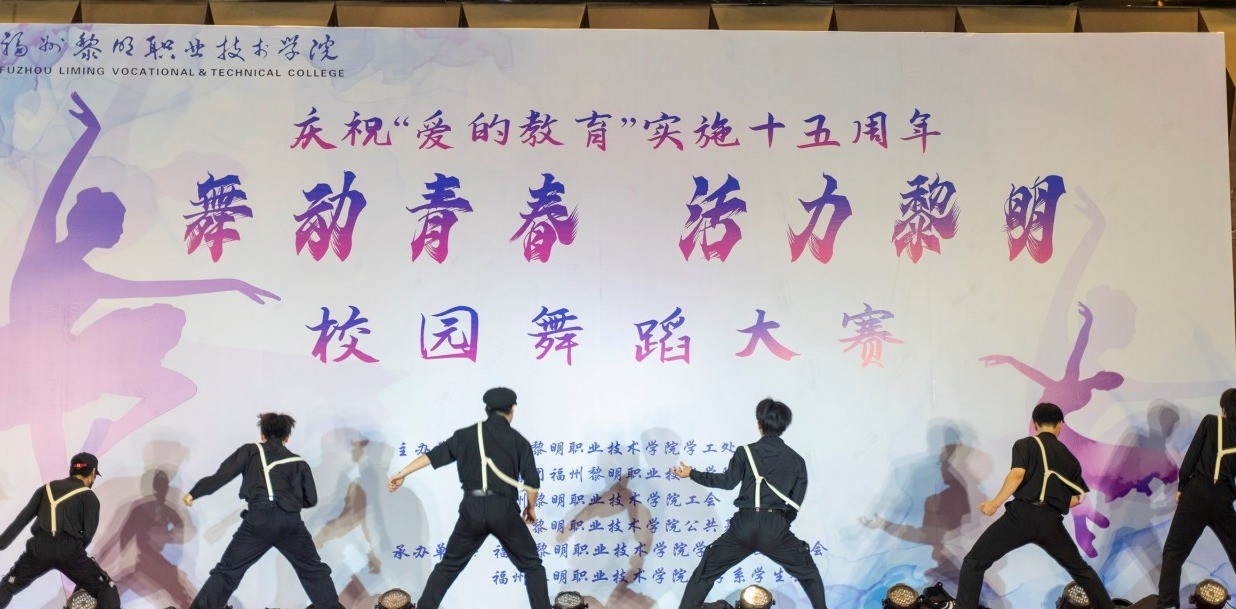 福州黎明职业技术学院
FUZHOU LIMING VOCATIONAL & TECHNICAL COLLEGE
庆祝“爱的教育”实施十五周年
舞动青春 活力黎明
校园舞蹈大赛
主办 黎明职业技术学院学工处
福州黎明职业技
黎明职业技术学院工会
黎明职业技术学院公共
承办单 福 黎明职业技术学院学 会
福州 明职业技术学院 系学生